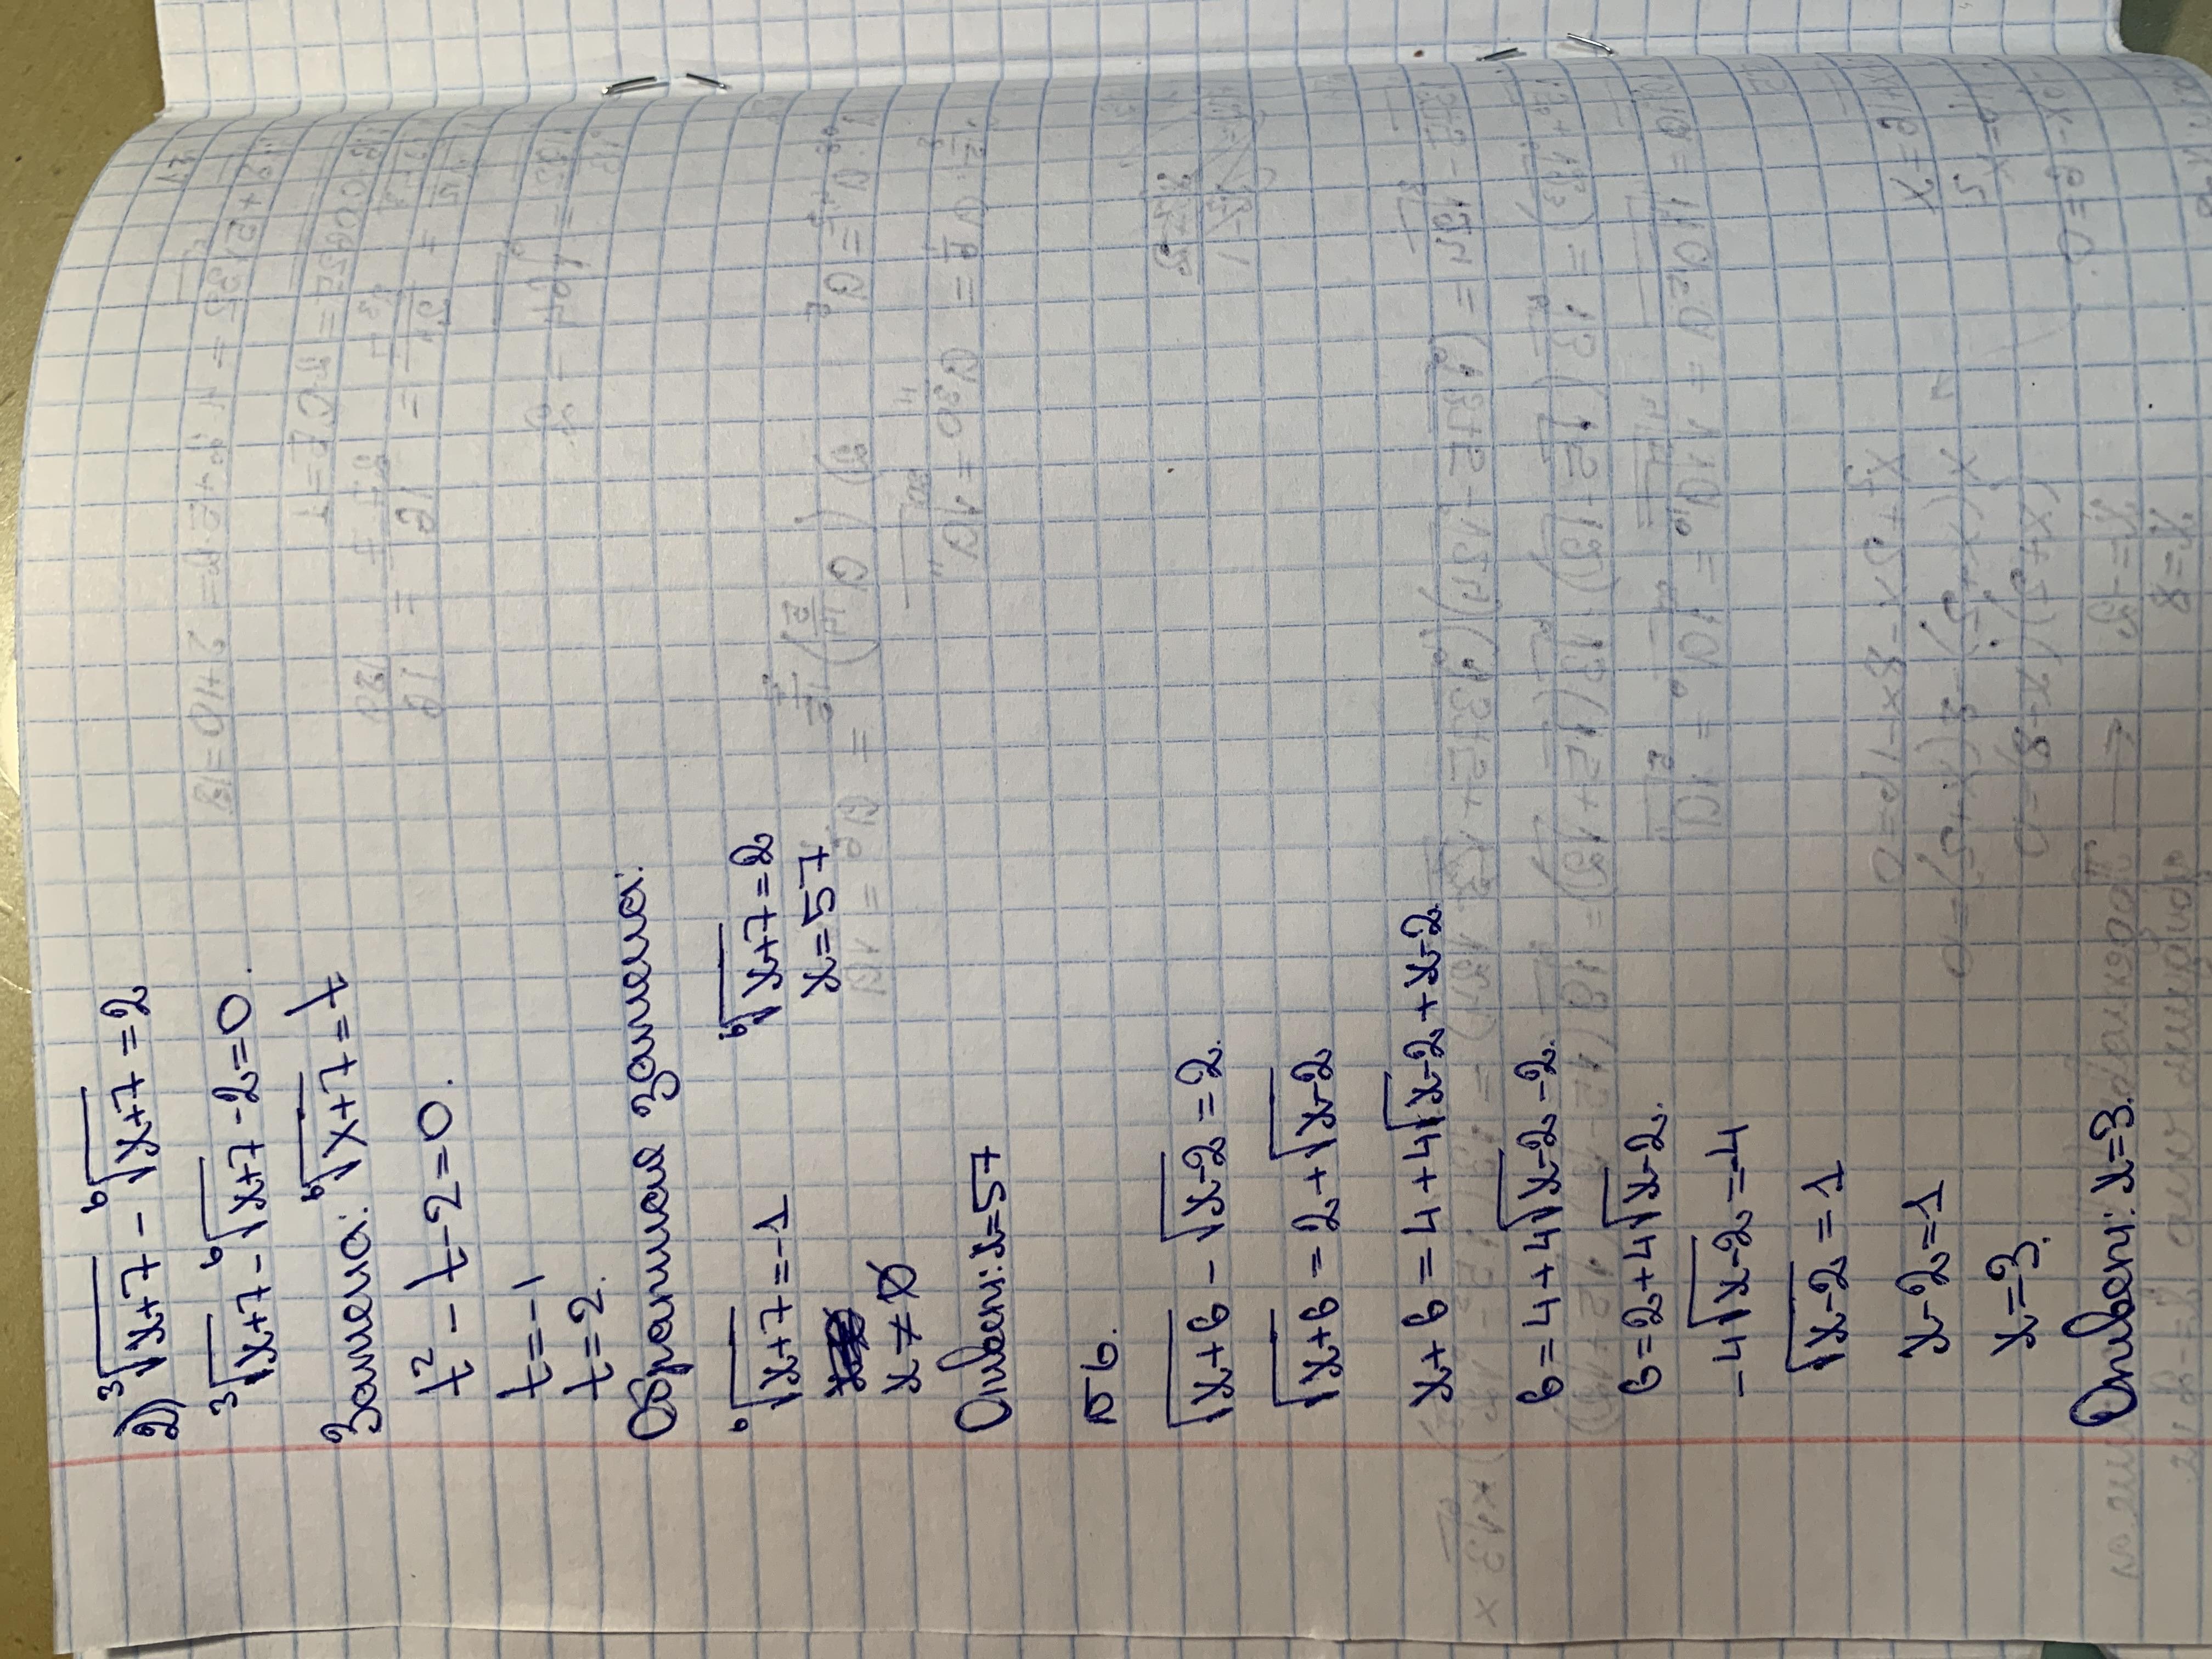 2) ³√x+7 - ⁶√x+7 = 2
³√x+7 - ⁶√x+7 - 2=0.
Замена: ⁶√x+7 = t
t² - t - 2=0.
t=-1
t=2.
Обратная замена:
⁶√x+7 = -1 ⁶√x+7 = 2
x=57
x ≠ ∅
Ответ: x=57
№6.
√x+6 - √x-2 = 2.
√x+6 = 2+√x-2
x+6 = 4+4√x-2+x-2.
6=4+4√x-2-2.
6=2+4√x-2.
-4√x-2=-4
√x-2=1
x-2=1
x=3.
Ответ: x=3.